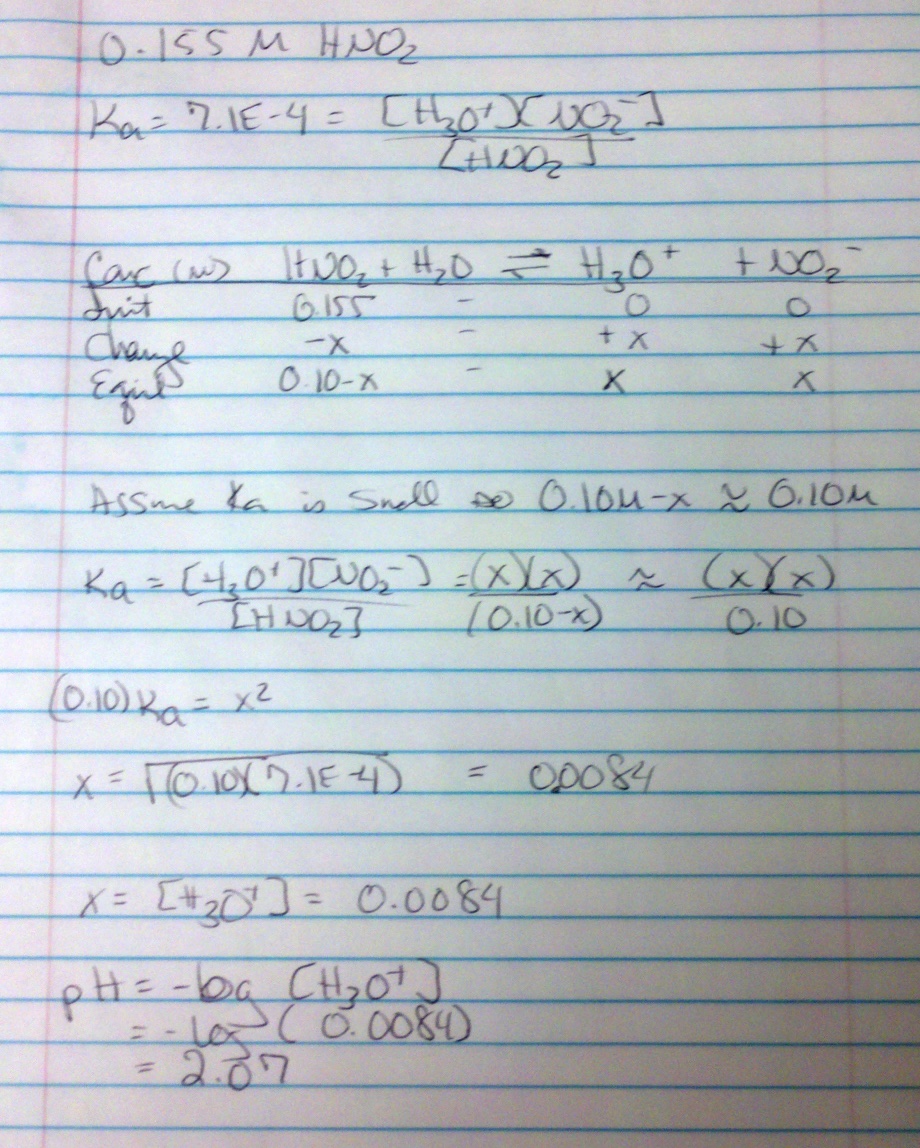 0.155 M HNO₂
Ka = 7.1E-4 = [H₃O⁺][NO₂⁻]
[HNO₂]
Conc (M) HNO₂ + H₂O ⇌ H₃O⁺ + NO₂⁻
Init 0.155 - 0 0
Change -x - +x +x
Equil 0.10-x - x x
Assume Ka is small so 0.10M-x ≈ 0.10M
Ka = [H₃O⁺][NO₂⁻] = (x)(x) ≈ (x)(x)
[HNO₂] (0.10-x) 0.10
(0.10)Ka = x²
x = √(0.10)(7.1E-4) = 0.0084
x = [H₃O⁺] = 0.0084
pH = -log [H₃O⁺]
= -log (0.0084)
= 2.07